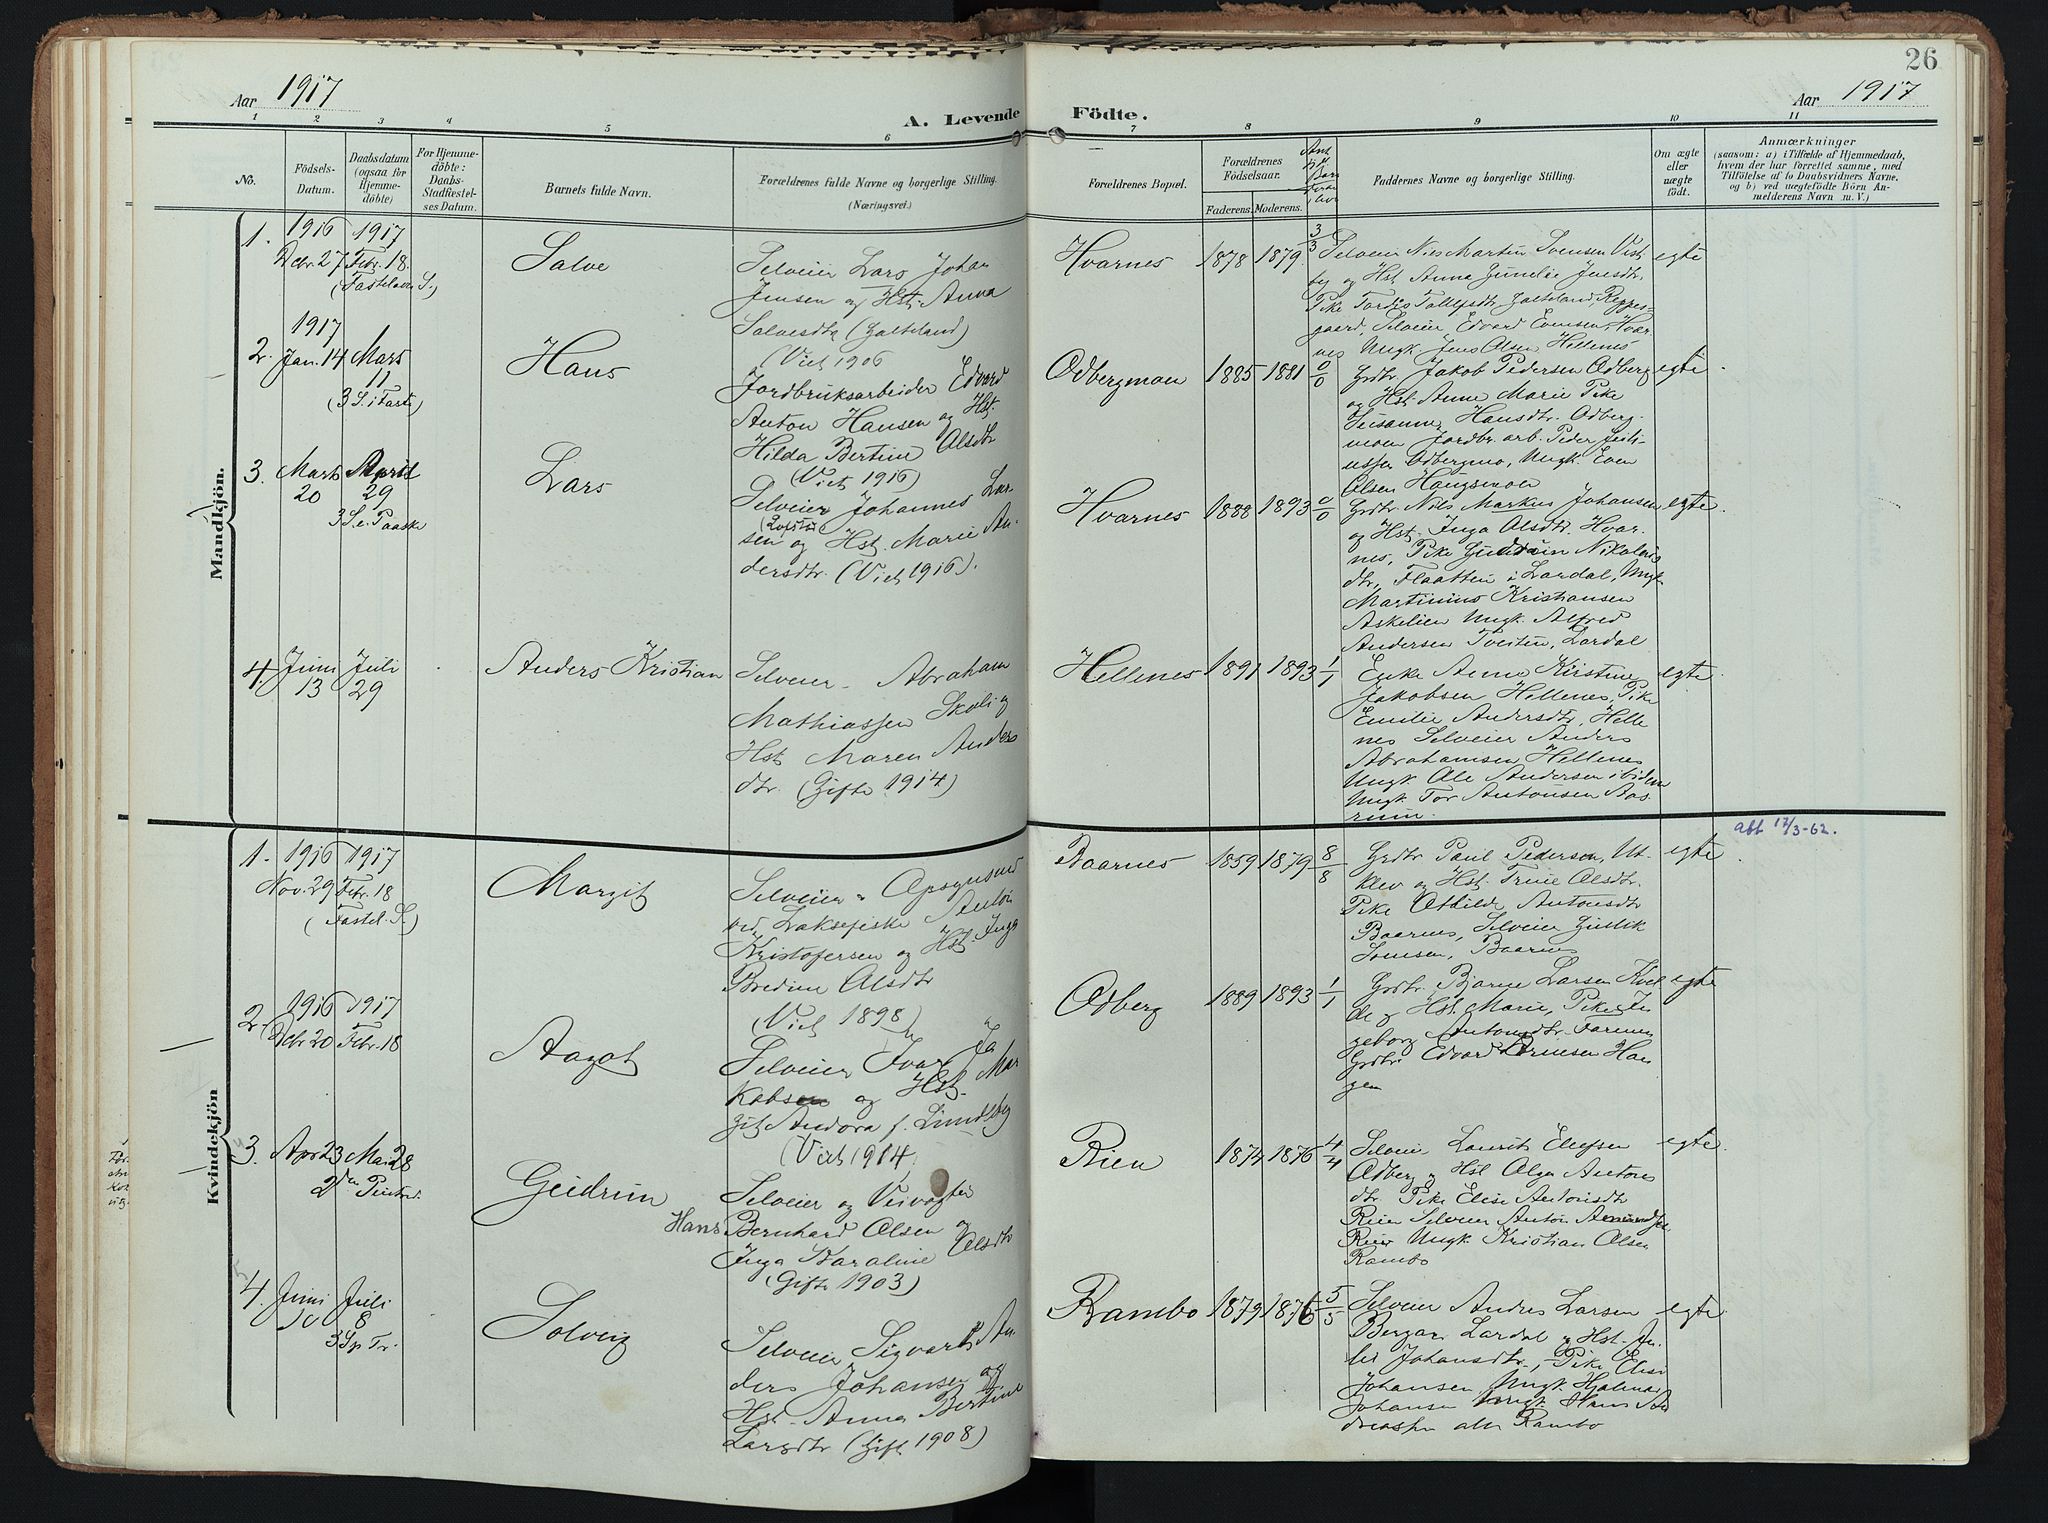 26
Aar 1917
A. Levende Födte.
Aar 1917
1 2 3 4 5 6 7 8 9 10 11
No.
Födsels-
Datum.
Daabsdatum
(ogsaa for
Hjemme-
döbte)
For Hjemme-
döbte:
Daabs-
Stadfæstel-
ses Datum.
Barnets fulde Navn.
Forældrenes fulde Navne og borgerlige Stilling.
(Næringsvei.)
Forældrenes Bopæl.
Forældrenes
Födselsaar.
Faderens. Moderens.
Faddernes Navne og borgerlige Stilling.
Om ægte
eller
uægte
födt.
Anmærkninger
(saasom: a) i Tilfælde af Hjemmedaab,
hvem der har forrettet samme, med
Tilföielse af to Daabsvidners Navne,
og b) ved uægtefödte Börn An-
melderens Navn m. V.)
Mandkjön.
1.
1916 1917
Dcbr. 27 Febr. 18.
(Fastelavn S.)
Salve
Selveier Lars Johan
Jensen og Hst. Anna
Salvesdtr (Gatteland)
(Viet 1906
Hvarnes
1878 1879
3/3
Selveier Nils Martin Svensen Vest
by og Hst. Anna Gunelie Jensdtr.
Pike Tordis Tollefsdtr,
gaard, Selveier Edvard Evensen, Hvar
nes Ungk. Jens Olsen Hellenes
egte
2.
1917
Jan. 14 Mars
11
(3 S. i Faste)
Hans
Jordbruksarbeider Edvard
Anton Hansen og Hst.
Hilda Bertine Olsdtr
(Viet 1916)
Odbergmoan
1885 1881
0/0
Grdbr. Jakob Pedersen Odberg
og Hst. Anne Marie Pike
Susanne Hansdtr. Odberg-
moen Jordbr. arb. Peder Juli-
ussen Odbergmo, Ungk. Even
Olsen Haugsmoen
egte
3.
Marts April
20 29
3 S. e. Paaske
Lars
Selveier Johannes Lar-
sen og Hst. Marie An-
dersdtr. (Viet 1916).
Hvarnes
1888 1893
0/0
Grdbr. Nils Markus Johansen
og Hst. Inga Olsdtr. Hvar-
nes, Pike Gudrun Nikolais
dtr, Flaatten i Lardal, Ungk.
Martinius Kristiansen
Askelien Ungk. Alfred
Andersen Tveiten, Lardal
egte
4.
Juni Juli
13 29
Anders Kristian
Selveier Abraham
Mathiassen Skoli og
Hst. Maren Anders
dtr. (Gifte 1914)
Hellenes
1891 1893
1/1
Enke Anne Kirstine
Jakobsen Hellenes, Pike
Emilie Andersdtr, Helle
nes Selveier Anders
Abrahamsen Hellenes
Ungk. Ole Andersen ibidem
Ungk. Tor Antonsen Aas-
rum.
egte
Kvindekjön
1.
1916 1917
Nov. 29 Febr. 18
(Fastel. S.)
Margit
Selveier Opsynsmd
ved Laksefiske Anton
Kristofersen og Hst. Inga
Bredine Olsdtr
(Viet 1898)
Baarnes
1859 1879
8/8
Grdbr Paul Pedersen, Ut-
klev og Hst. Trine Olsdtr.
Pike Othilde Antonsdtr
Baarnes, Selveier Gullik
Baarnes
egte
abt 12/3-62.
2.
1916 1917
Dcbr 20 Febr. 18
Aagot
Selveier Ivar Ja
kobsen og Hst. Mar
git Andora f. Lundeby
(Viet 1914
Odberg
1889 1893
1/1
Grdbr. Bjarne Larsen Kvel
de og Hst. Marie, Pike In
geborg Antonsdtr. Farmen
Grdbr. Edvard Arnesen Hau
gen
egte
3.
Apr 23 Mai 28
2den Pintsed.
Gudrun
Selveier og Veivogter
Hans Bernhard Olsen og
Inga Karoline Olsdtr
(Gifte 1903)
Rien
1874 1876
4/4
Selveier Laurits Ellefsen
Odberg og Hst Olga Antons
dtr. Pike Elise Antonsdtr
Rien Selveier Anton
Rien Ungk. Kristian Olsen
Rambo
egte
4.
Juni Juli
10 8
3 S p Tr.
Solveig
Selveier Sigvart An-
ders Johansen og
Hst. Anna Bertine
Larsdtr (Gift 1908)
Rambo
1879 1876
5/5
Selveier Andres Larsen
Bergan Lardal og Hst.
Johansdtr., Pike Elise
Johansen, Ungk. Hjalmar
Johansen Ungk. Hans An
dreassen alle Rambo
egte